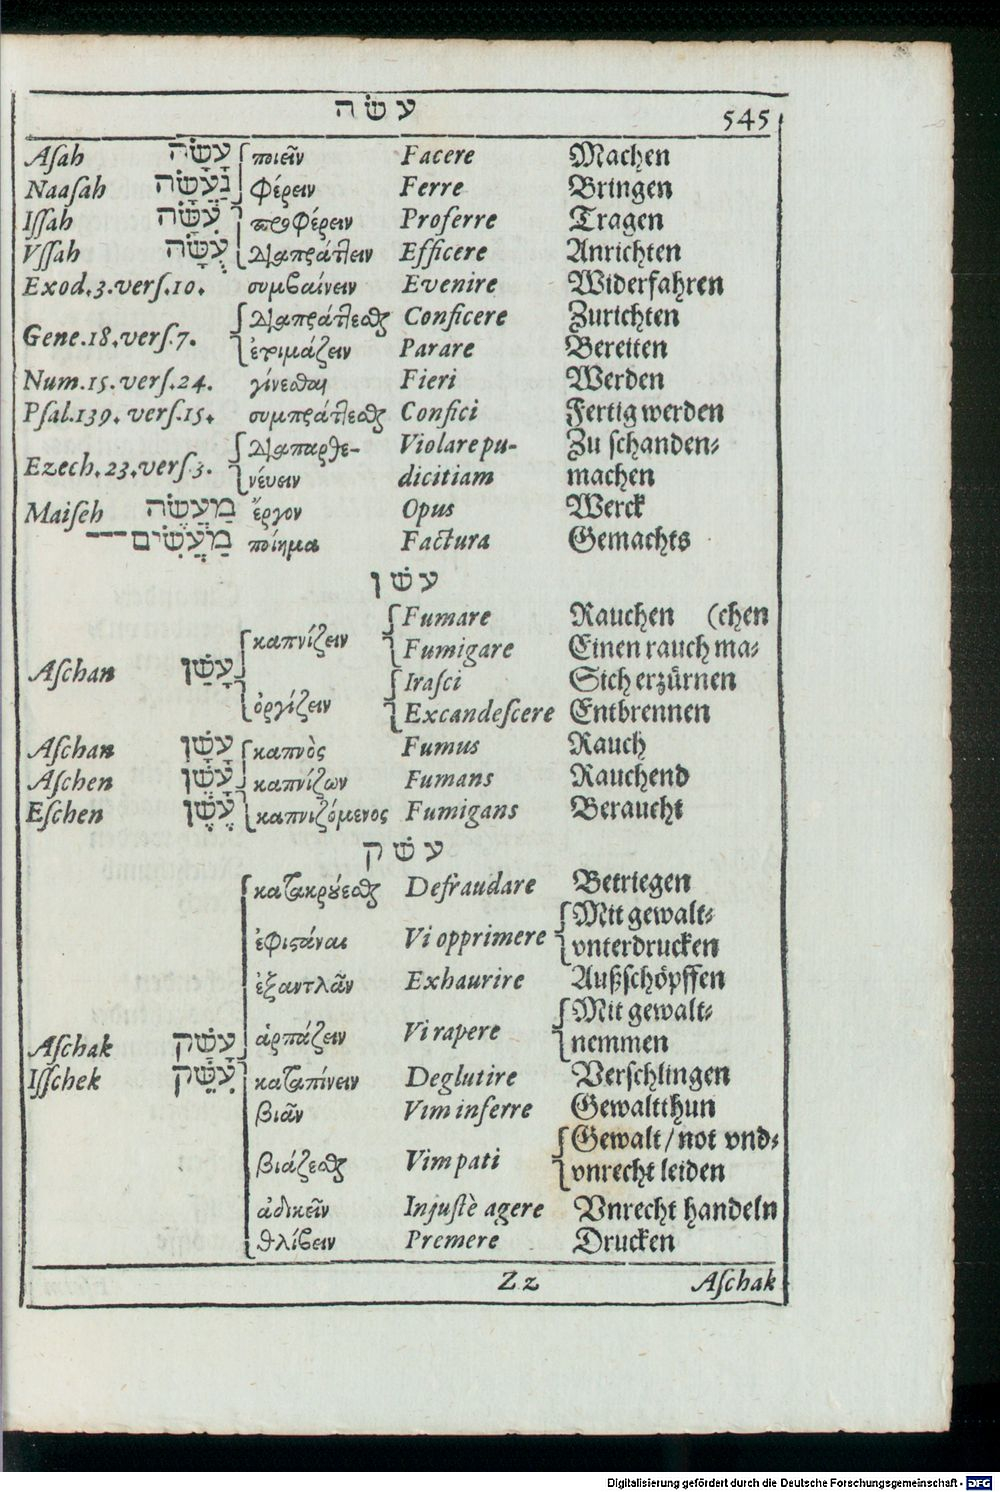 עשׂה 545
Aſah עָשָׂה ποιεῖν Facere Machen
Naaſah נַעֲשָׂה φέρειν Ferre Bringen
Iſſah עִשָּׂה προφέρειν Proferre Tragen
Vſſah עֻשָּׂה διαπράττειν Efficere Anrichten
Exod.3.verſ.10. συμβαίνειν Evenire Widerfahren
Gene.18.verſ.7. διαπράττεσθαι Conficere Zurichten
ἑτοιμάζειν Parare Bereiten
Num.15.verſ.24. γίνεσθαι Fieri Werden
Pſal.139.verſ.15. συμπράττεσθαι Confici Fertig werden
Ezech.23.verſ.3. διαπαρθε- Violare pu- Zu ſchanden-
νεύειν dicitiam machen
Maiſeh מַעֲשֶׂה ἔργον Opus Werck
מַעֲשִׂים --- ποίημα Factura Gemachts
עשׁן
Fumare Rauchen (chen
καπνίζειν Fumigare Einen rauch ma-
Aſchan עָשַׁן Iraſci Sich erzürnen
ὀργίζειν Excandeſcere Entbrennen
Aſchan עָשָׁן καπνὸς Fumus Rauch
Aſchen עָשֵׁן καπνίζων Fumans Rauchend
Eſchen עֶשֶׁן καπνιζόμενος Fumigans Beraucht
עשׁק
κατακρούεσθαι Defraudare Betriegen
ἐφιστάναι Vi opprimere Mit gewalt-
vnterdrucken
ἐξαντλᾶν Exhaurire Außſchöpffen
ἁρπάζειν Vi rapere Mit gewalt-
Aſchak עָשַׁק nemmen
Iſſchek עִשֵּׁק καταπίνειν Deglutire Verſchlingen
βιᾶν Vim inferre Gewalt thun
βιάζεσθαι Vim pati Gewalt / not vnd-
vnrecht leiden
ἀδικεῖν Injuſtè agere Vnrecht handeln
θλίβειν Premere Drucken
Zz Aſchak
Digitalisierung gefördert durch die Deutsche Forschungsgemeinschaft - DFG